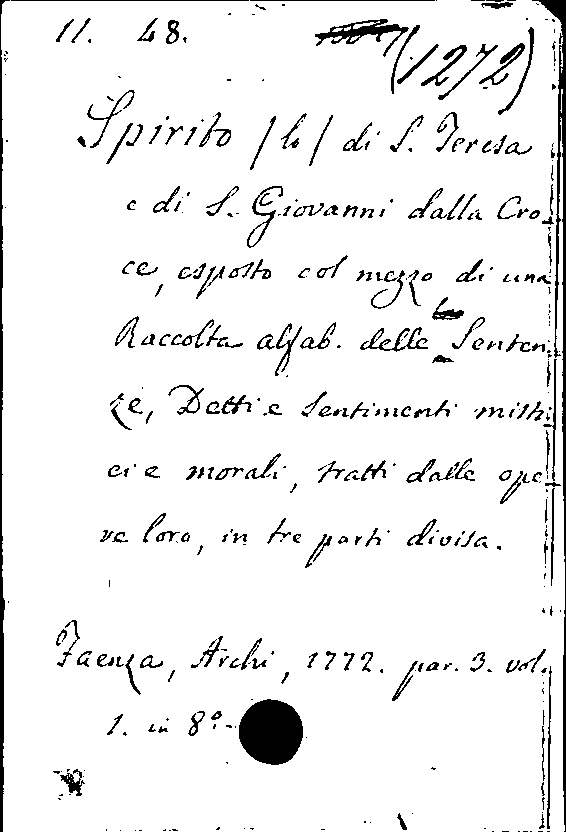 11. 48.
(1272)
Spirito /lo/ di S. Teresa
e di S. Giovanni dalla Cro-
ce, esposto col mezzo di una
Raccolta alfab. delle Senten-
ze, Detti e Sentimenti misti-
ci e morali, tratti dalle ope-
re loro, in tre parti divisa.
Faenza, Archi, 1772. par. 3. vol.
1. in 8º.-